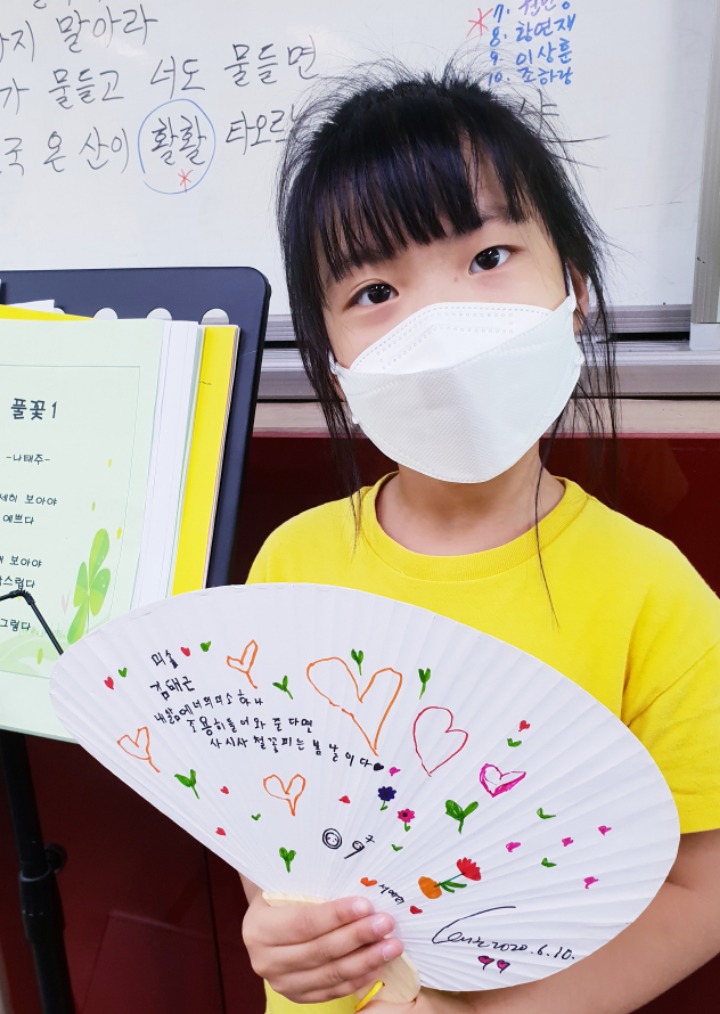 지 말아라
가 물들고 너도 물들면
국 온 산이 활활 타오르
8. 황연재
9. 이상훈
10. 조하랑
풀꽃 1
-나태주-
세히 보아야
예쁘다
보아야
스럽다
그렇다
미술
김태근
내 삶에 너의 미소 하나
조용히 들어와 준다면
사시사철 꽃피는 봄날이다
서예리
2020.6.10.